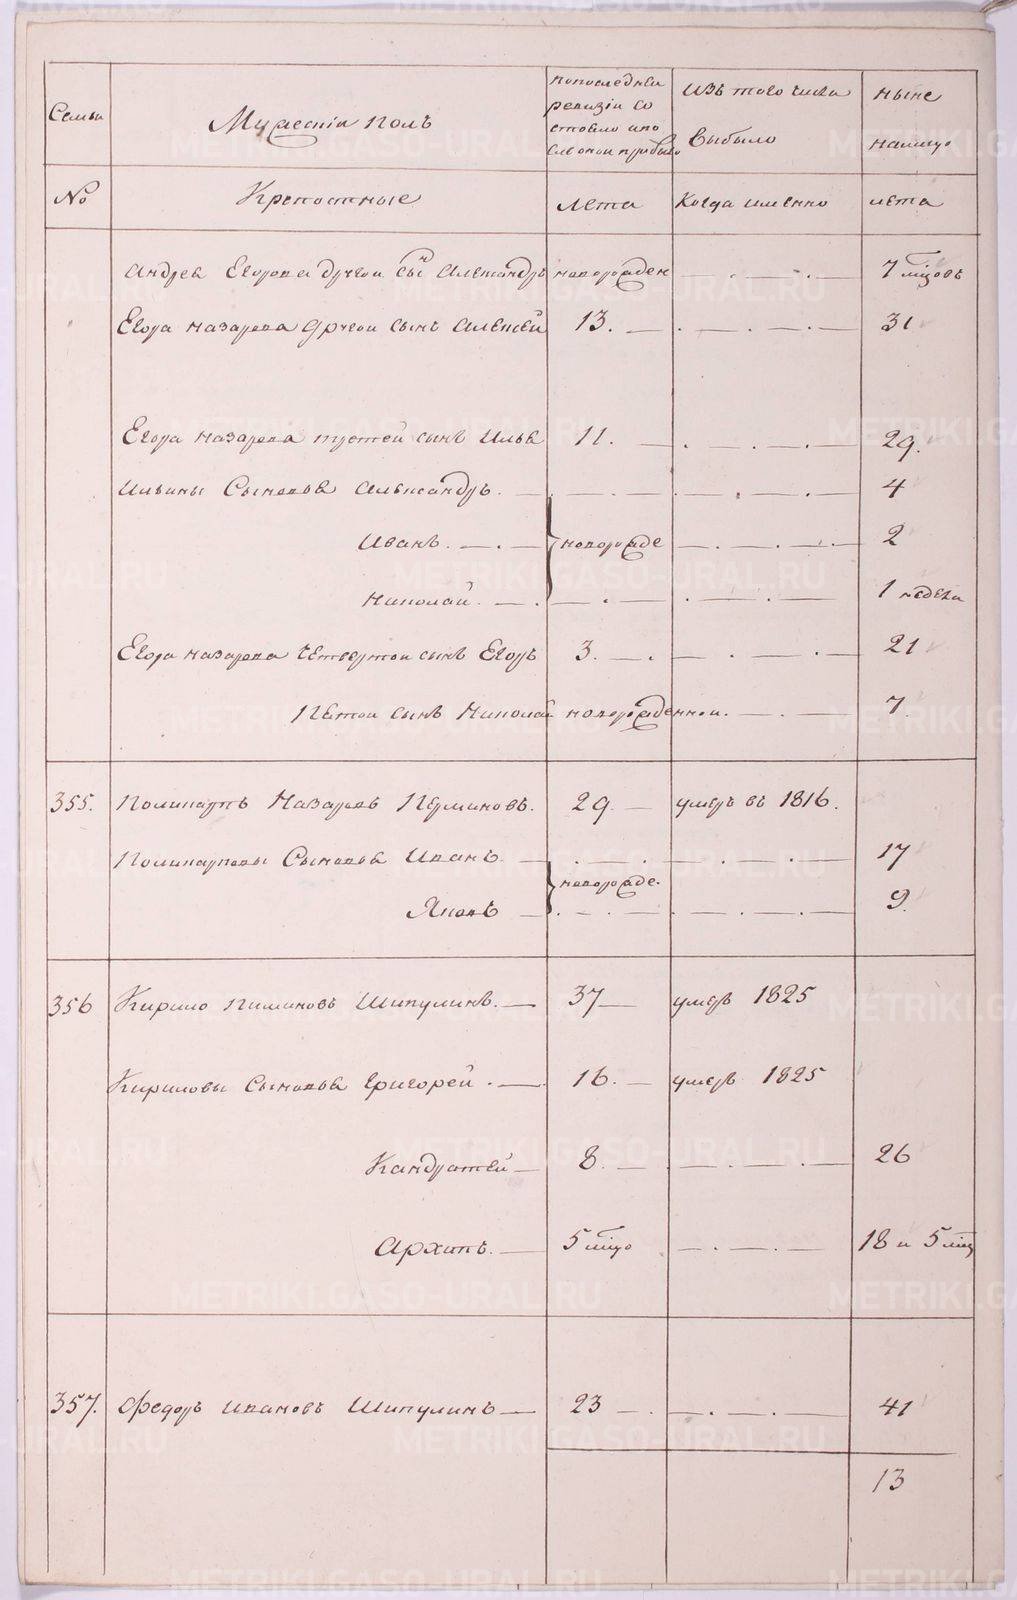 Семьи
Мужескій полъ
попоследней ревизіи состояло ипосле оной прибыло
изъ того числа выбыло
ныне налицо
№
Крепостные
лета
когда именно
лета
Андрея Егорова другой сынъ Александръ новорожден — . — . — 7 мцовъ
Егора Назарова другой сынъ Алексей 13. — . — . — . — 31
Егора Назарова третей сынъ Илья 11. — . — . — 29.
Ильины Сыновья Александръ. — . — . — . — 4
Иванъ. — . — новорожде — . — . — 2
Николай. — . — . — . — . — 1 неделя
Егора Назарова четвертой сынъ Егоръ 3. — . — . — . — 21
Пятой сынъ Николай новорожденной. — . — 7.
355. Поликарпъ Назаровъ Перминовъ. 29. — умеръ въ 1816.
Поликарповы Сыновья Иванъ — . — . — . — 17
новорожде.
Яковъ — . — . — . — 9.
356 Кирило Пименовъ Шипулинъ. — 37 — умеръ 1825
Кириловы Сыновья Григорей. — 16. — умеръ 1825
Кандратей — 8. — . — . — 26
Архипъ. — 5 мцо — . — . — 18 и 5 мцо
357. Федоръ Ивановъ Шипулинъ — 23 — . — . — . — 41
13
METRIKI.GASO-URAL.RU